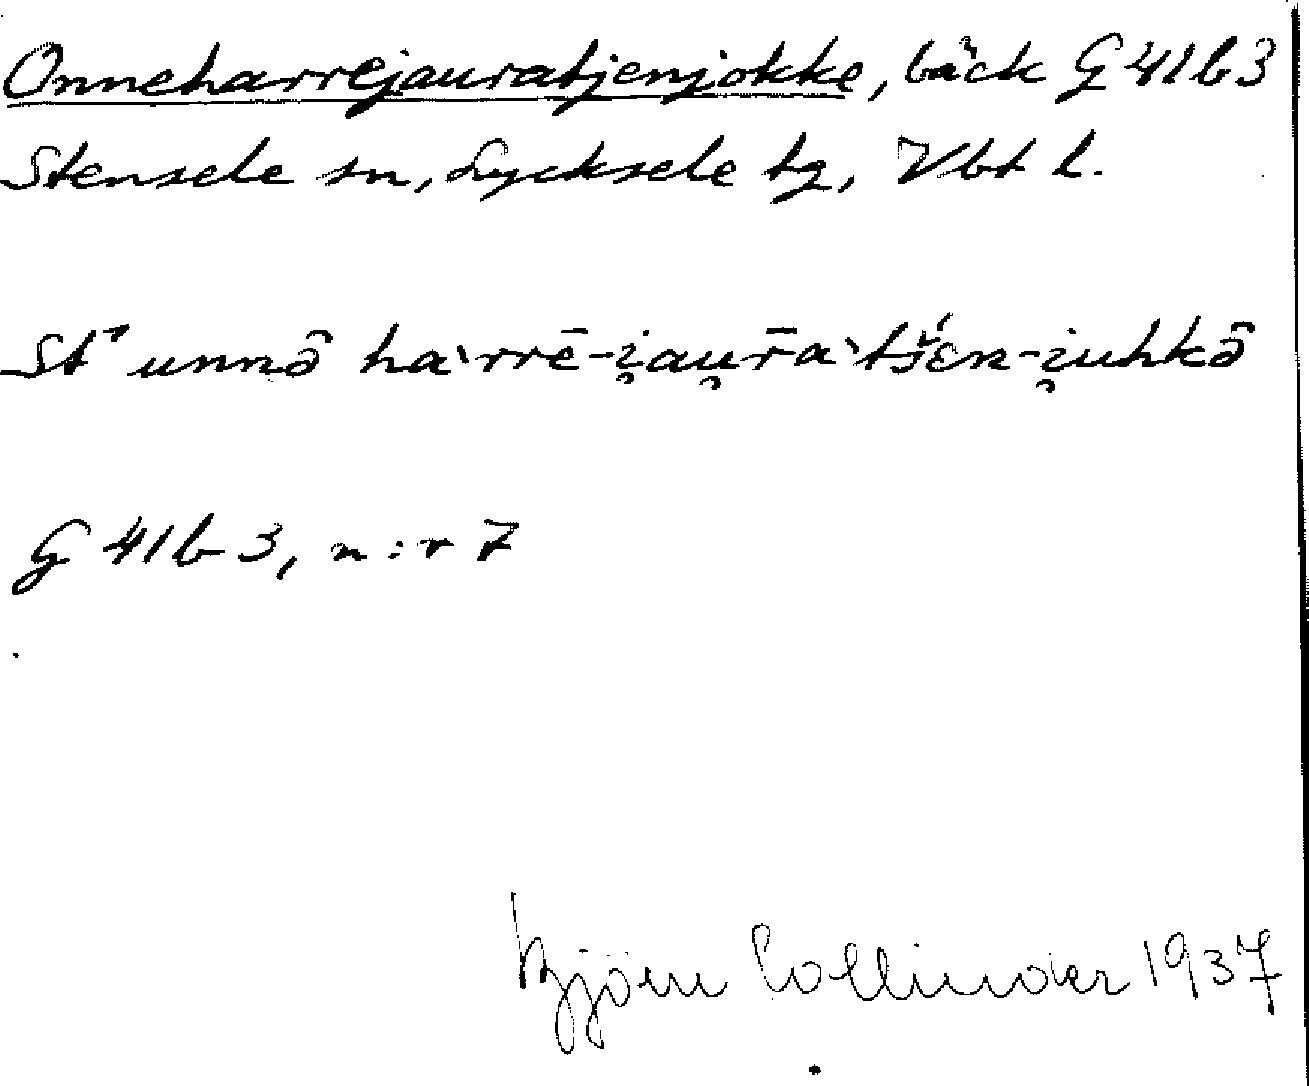 Onneharrejauratjenjokke, bäck G 41 b 3
Stensele sn, Lycksele tg, Vbt l.
St⁊ unnô haˋrrē-i̯au̯r̄aˋtšɛ́n-i̯uhkô
G 41 b 3, n:r 7
Björn Collinder 1937